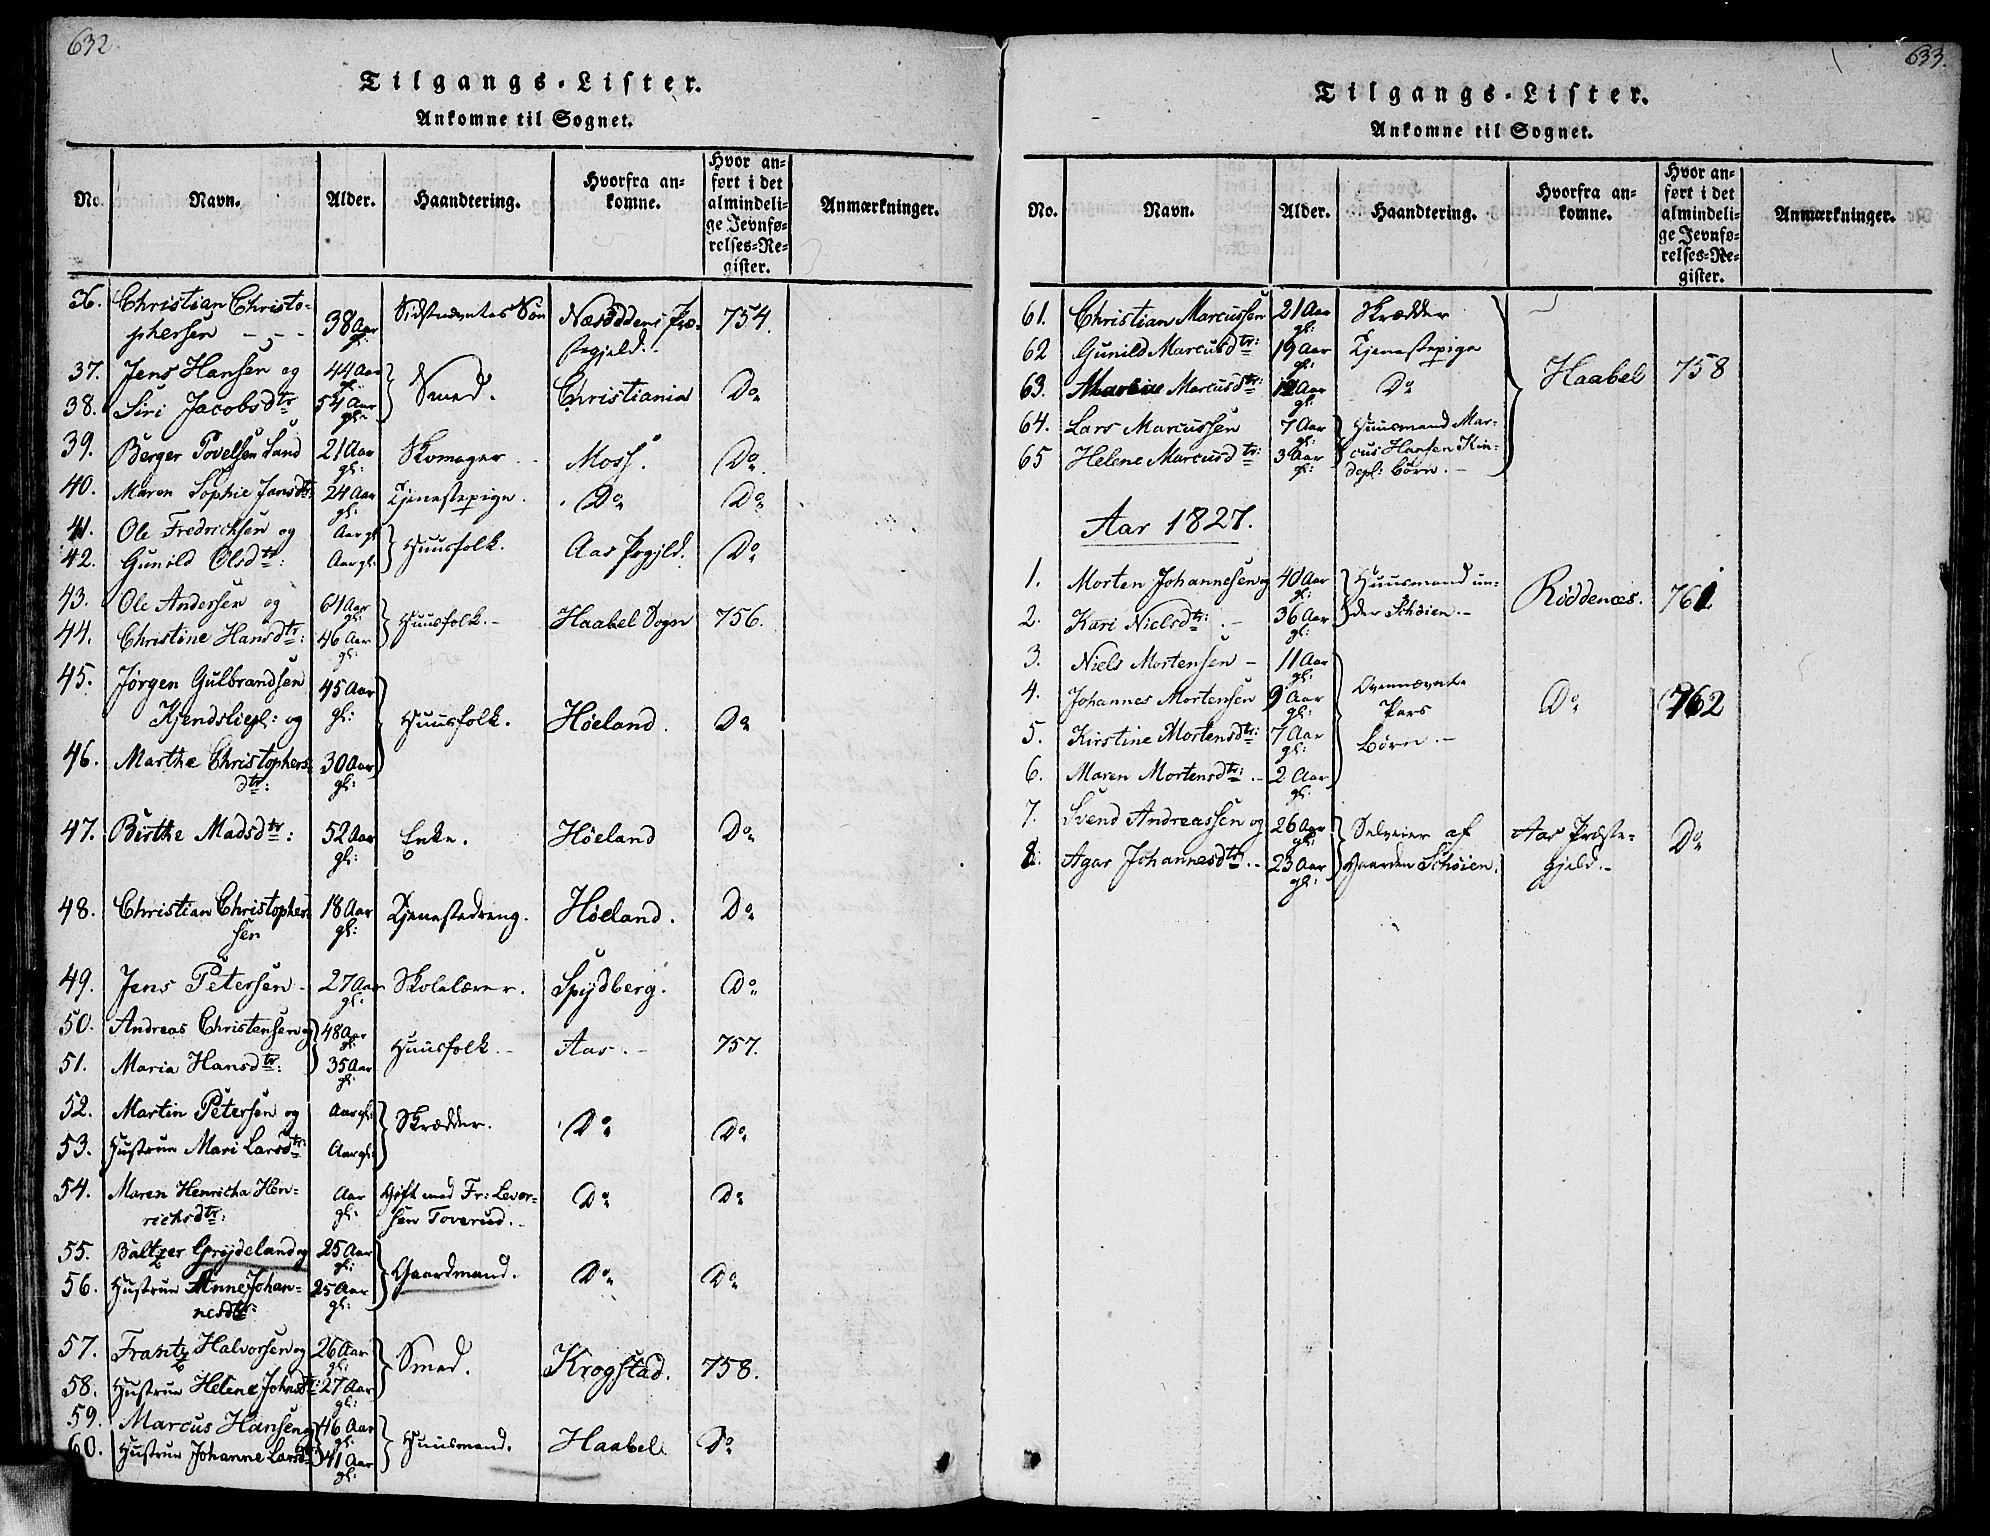 632.
Tilgangs-Lister.
Ankomne til Sognet.
No. Navn. Alder. Haandtering. Hvorfra ankomne. Hvor anført i det almindelige Jevnførelses-Register. Anmærkninger.
36. Christian Christo-
phersen - „ - 38 Aar gl: Sidstnævntes Søn Næsoddens Præ-
stegjeld. 754.
37. Jens Hansen og 44 Aar gl: Smed. Christiania Do
38. Siri Jacobsdtr 54 Aar gl:
39. Berger Povelsen Sand 21 Aar gl: Skomager Moss. Do
40. Maren Sophie Jansdtr: 24 Aar gl: Tjenestepige. Do Do
41. Ole Fredrichsen og Aar gl: Huusfolk. Aas Prgjld. Do
42. Gunild Olsdtr: Aar gl:
43. Ole Andersen og 61 Aar gl: Huusfolk.- Haabel Sogn 756.
44. Christine Hansdtr: 46 Aar gl:
45. Jørgen Gulbrandsen
Kjendsliepl: og 45 Aar gl: Huusfolk. Høeland. Do
46. Marthe Christophers
dtr: 30 Aar gl:
47. Birthe Madsdtr: 52 Aar gl: Enke. Høeland Do
48. Christian Christopher
sen 18 Aar gl: Tjenestedreng. Høeland. Do
49. Jens Petersen 27 Aar gl: Skolelærer. Spydberg. Do
50. Andreas Christensen og 48 Aar gl: Huusfolk.- Aas.- 757.
51. Maria Hansdtr: 35 Aar gl:
52. Martin Petersen og Aar gl: Skrædder. Do Do
53. Hustrue Mari Larsdtr: Aar gl:
54. Maren Henricha Hen-
richsdtr: Aar gl: Gift med Fr: Levor-
sen Toverud. Do Do
55. Baltzer Grøjdeland og 25 Aar gl: Gaardmand. Do Do
56. Hustrue Anne Johan-
nesdtr: 25 Aar gl:
57. Frantz Halvorsen og 26 Aar gl: Smed. Krogstad. 758.
58. Hustrue Helene Johnsdtr: 27 Aar gl:
59. Marcus Hansen og 46 Aar gl: Huusmand. Haabel Do
60. Hustrue Johanne Larsdtr 41 Aar gl:
633.
Tilgangs-Lister.
Ankomne til Sognet.
No. Navn. Alder. Haandtering. Hvorfra ankomne. Hvor anført i det almindelige Jevnførelses-Register. Anmærkninger.
61. Christian Marcussen 21 Aar gl: Skrædder Haabel 758
62 Gunild Marcusdtr: 19 Aar gl: Tjenestepige
63. Marcusdtr: Aar gl: Do
64. Lars Marcussen 7 Aar gl: Huusmand Mar-
cus Hansen Kin-
depl: Børn.-
65 Helene Marcusdtr: 3 Aar gl:
Aar 1827.
1. Morten Johannesen og 40 Aar gl: Huusmand un-
der Schøien.- Røddenæs. 761
2. Kari Nielsdtr: .- 36 Aar gl:
3. Niels Mortensen - 11 Aar gl: Ovennævnte
Pars
Børn.- Do 762
4. Johannes Mortensen 9 Aar gl:
5. Kirstine Mortensdtr: 7 Aar gl:
6. Maren Mortensdtr: .- 2 Aar gl:
7. Svend Andreassen og 26 Aar gl: Selveier af
Gaarden Schøien. Aas Præste-
Gjeld.- Do
8. Agar Johannesdtr: .- 23 Aar gl: